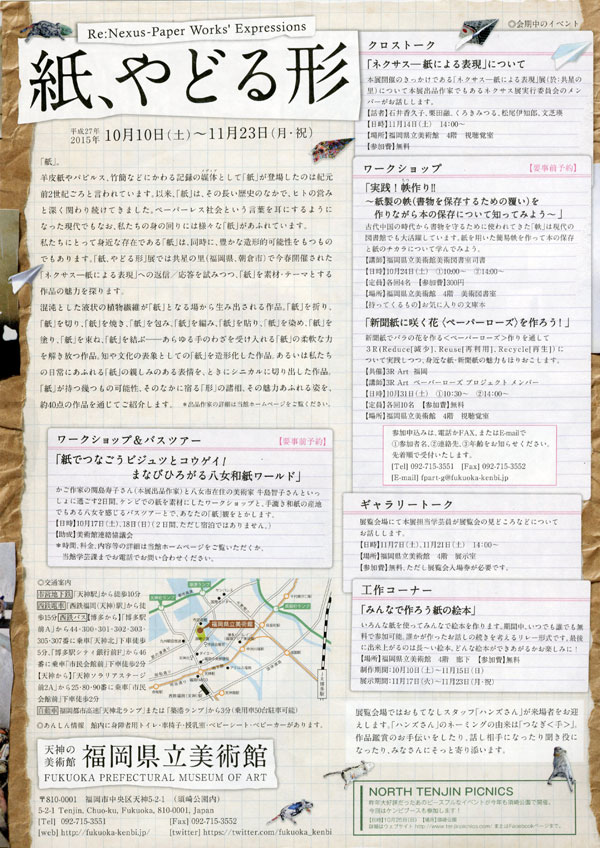 Re:Nexus-Paper Works' Expressions
紙、やどる形
平成27年
2015年 10月10日(土)〜11月23日(月・祝)
「紙」。
羊皮紙やパピルス、竹簡などにかわる記録の媒体として「紙」が登場したのは紀元
前2世紀ごろと言われています。以来、「紙」は、その長い歴史のなかで、ヒトの営み
と深く関わり続けてきました。ペーパーレス社会という言葉を耳にするように
なった現代でもなお、私たちの身の回りには様々な「紙」があふれています。
私たちにとって身近な存在である「紙」は、同時に、豊かな造形的可能性をもつもの
でもあります。「紙、やどる形」展では共星の里(福岡県、朝倉市)で今春開催された
「ネクサス―紙による表現」への返信/応答を試みつつ、「紙」を素材・テーマとする
作品の魅力を探ります。
混沌とした液状の植物繊維が「紙」となる場から生み出される作品。「紙」を折り、
「紙」を切り、「紙」を焼き、「紙」を包み、「紙」を編み、「紙」を貼り、「紙」を染め、「紙」を
塗り、「紙」を束ね、「紙」を結ぶ――あらゆる手のわざを受け入れる「紙」の柔軟な力
を解き放つ作品。知や文化の表象としての「紙」を造形化した作品。あるいは私たち
の日常にあふれる「紙」の親しみのある表情を、ときにシニカルに切り出した作品。
「紙」が待つ幾つもの可能性、そのなかに宿る「形」の諸相、その魅力あふれる姿を、
約40点の作品を通じてご紹介します。 *出品作家の詳細は当館ホームページをご覧ください。
ワークショップ&バスツアー 【要事前予約】
「紙でつなごうビジュツとコウゲイ!
まなびひろがる八女和紙ワールド」
かご作家の関島寿子さん(本展出品作家)と八女市在住の美術家 牛島智子さんといっ
しょに過ごす2日間。ケンビでの紙を素材にしたワークショップと、手漉き和紙の産地
でもある八女を感じるバスツアーとで、あなたの「紙」観をとかします。
【日時】10月17日(土)、18日(日)(2日間、ただし宿泊ではありません。)
【助成】美術館連絡協議会
*時間、料金、内容等の詳細は当館ホームページをご覧いただくか、
当館学芸課までお電話でお問い合わせください。
◎交通案内
市営地下鉄 「天神駅」から徒歩10分
西鉄電車 「西鉄福岡(天神)駅」から徒
歩15分 西鉄バス 【博多から】「博多駅
前A」から44・300・301・302・303・
305・307番に乗車「天神北」下車徒歩
5分、「博多駅シティ銀行前F」から46
番に乗車「市民会館前」下車徒歩2分
【天神から】「天神ソラリアステージ
前2A」から25・80・90番に乗車「市民
会館前」下車徒歩2分
自動車 福岡都市高速「天神北ランプ」または「築港ランプ」から3分(専用車50台駐車可能)
◎あんしん情報 館内に身障者用トイレ・車椅子・授乳室・ベビーシート・ベビーカーがあります。
福岡県立美術館
天神の
美術館 福岡県立美術館
FUKUOKA PREFECTURAL MUSEUM OF ART
〒810-0001 福岡市中央区天神5-2-1 (須崎公園内)
5-2-1 Tenjin, Chuo-ku, Fukuoka, 810-0001, Japan
[Tel] 092-715-3551 [Fax] 092-715-3552
[web] http://fukuoka-kenbi.jp/ [twitter] https://twitter.com/fukuoka_kenbi
◎会期中のイベント
クロストーク
「ネクサス―紙による表現」について
本展開催のきっかけである「ネクサス―紙による表現」展(於:共星の
里)について本展出品作家でもあるネクサス展実行委員会のメン
バーがお話しします。
【話者】石井香久子、栗田融、くろきみつる、松尾伊知郎、文芝瑛
【日時】11月14日(土) 14:00〜
【場所】福岡県立美術館 4階 視聴覚室
【参加費】無料
ワークショップ 【要事前予約】
「実践!帙作り!!
〜紙製の帙(書物を保存するための覆い)を
作りながら本の保存について知ってみよう〜」
古代中国の時代から書物を守るために使われてきた「帙」は現代の
図書館でも大活躍しています。紙を用いた簡易帙を作って本の保存
と紙のチカラについて学んでみよう。
【講師】福岡県立美術館美術図書室司書
【日時】10月24日(土) ①10:00〜 ②14:00〜
【定員】各回4名 【参加費】300円
【場所】福岡県立美術館 4階 美術図書室
【持ってくるもの】お気に入りの文庫本
「新聞紙に咲く花〈ペーパーローズ〉を作ろう!」
新聞紙でバラの花を作る<ペーパーローズ>作りを通して
3R(Reduce[減少]、Reuse[再利用]、Recycle[再生])に
ついて実践しつつ、身近な紙・新聞紙の魅力もほりおこします。
【共催】3R Art 福岡
【講師】3R Art ペーパーローズ プロジェクト メンバー
【日時】10月31日(土) ①10:30〜 ②14:00〜
【定員】各回10名 【参加費】無料
【場所】福岡県立美術館 4階 視聴覚室
参加申込みは、電話かFAX、またはE-mailで
①参加者名、②連絡先、③年齢をお知らせください。
先着順で受付いたします。
[Tel] 092-715-3551 [Fax] 092-715-3552
[E-mail] fpart-g@fukuoka-kenbi.jp
ギャラリートーク
展覧会場にて本展担当学芸員が展覧会の見どころなどについて
お話しします。
【日時】11月7日(土)、11月21日(土) 14:00〜
【場所】福岡県立美術館 4階 展示室
【参加費】無料、ただし展覧会入場券が必要です。
工作コーナー
「みんなで作ろう紙の絵本」
いろんな紙を使ってみんなで絵本を作ります。期間中、いつでも誰でも無
料で参加可能。誰かが作ったお話しの続きを考えるリレー形式です。最後
に出来上がるのは長〜い絵本。どんな絵本ができあがるかお楽しみに!
【場所】福岡県立美術館 4階 廊下 【参加費】無料
制作期間:10月10日(土)〜11月15日(日)
展示期間:11月17日(火)〜11月23日(月・祝)
展覧会場ではおもてなしスタッフ「ハンズさん」が来場者をお迎
えします。「ハンズさん」のネーミングの由来は「つなぎ<手>」。
作品鑑賞のお手伝いをしたり、話し相手になったり聞き役に
なったり、みなさんにそっと寄り添います。
NORTH TENJIN PICNICS
昨年大好評だったあのピースフルなイベントが今年も須崎公園で開催。
今年はケンビブースも参加します!